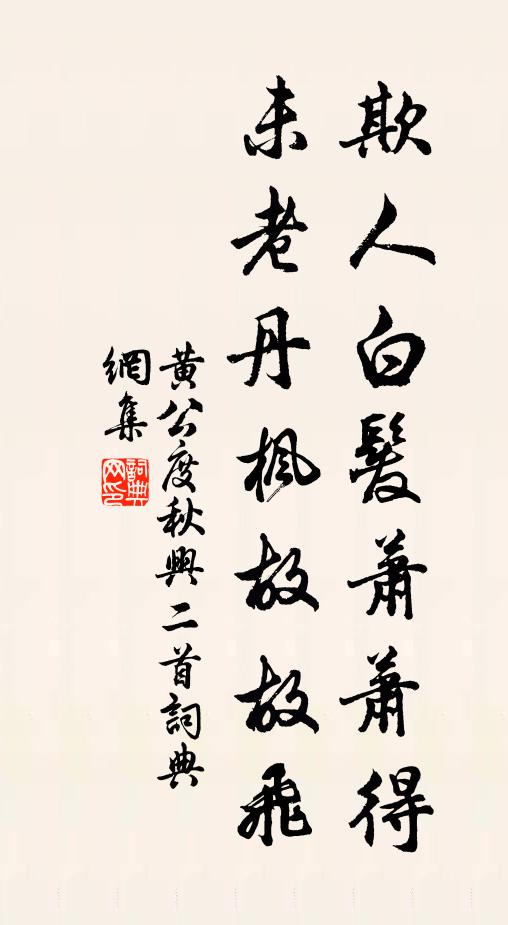 欺人白髮蕭蕭得
未老丹楓故故飛
黃公度秋興二首詞典
網集
詞典
网印